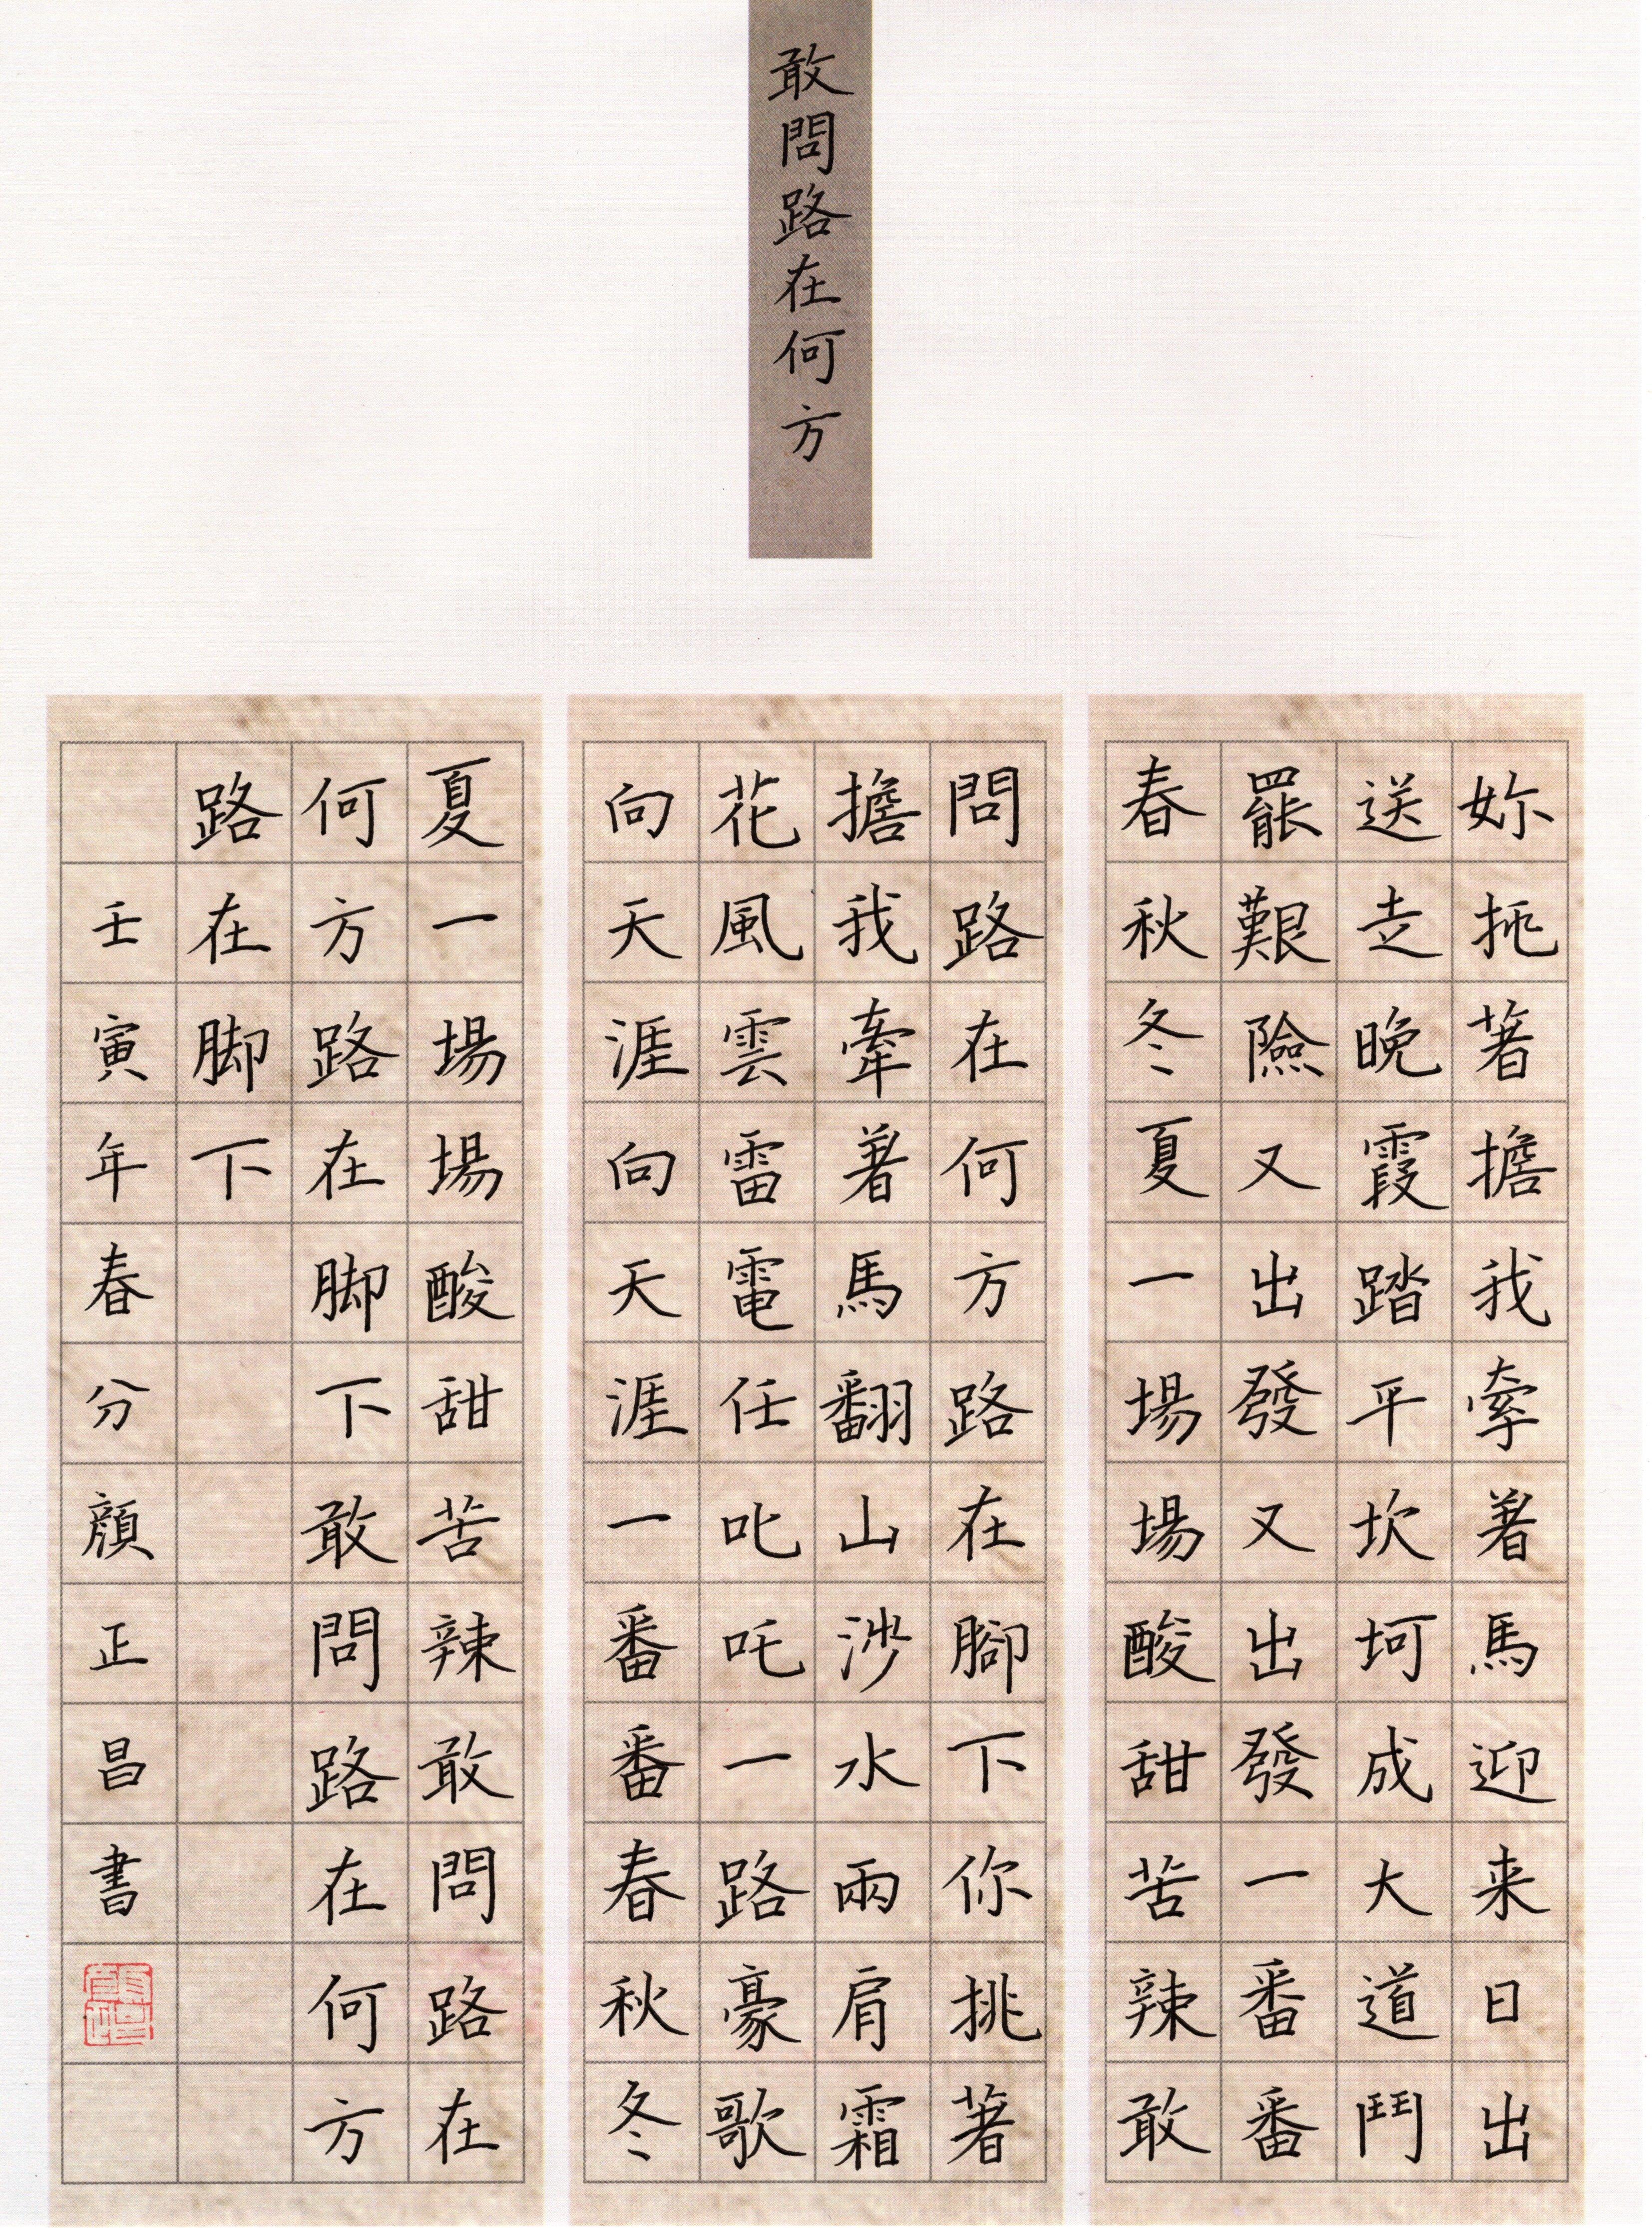 敢問路在何方
妳挑著擔我牽著馬迎来日出
送走晚霞踏平坎坷成大道鬥
罷艱險又出發又出發一番番
春秋冬夏一場場酸甜苦辣敢
問路在何方路在腳下你挑著
擔我牽著馬翻山涉水兩肩霜
花風雲雷電任叱吒一路豪歌
向天涯向天涯一番番春秋冬
夏一場場酸甜苦辣敢問路在
何方路在脚下敢問路在何方
路在脚下
壬寅年春分顏正昌書